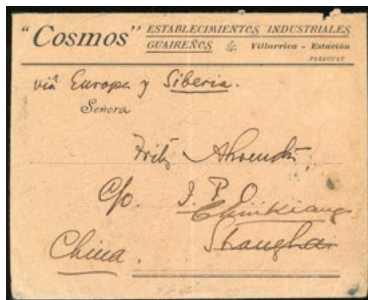 "Cosmos" ESTABLECIMIENTOS INDUSTRIALES
GUAIREÑOS Villarrica - Estación
PARAGUAY
via Europa y Siberia.
Señora
Fritz
C/o. I. P. O
Chinkiang
Shanghai
China.